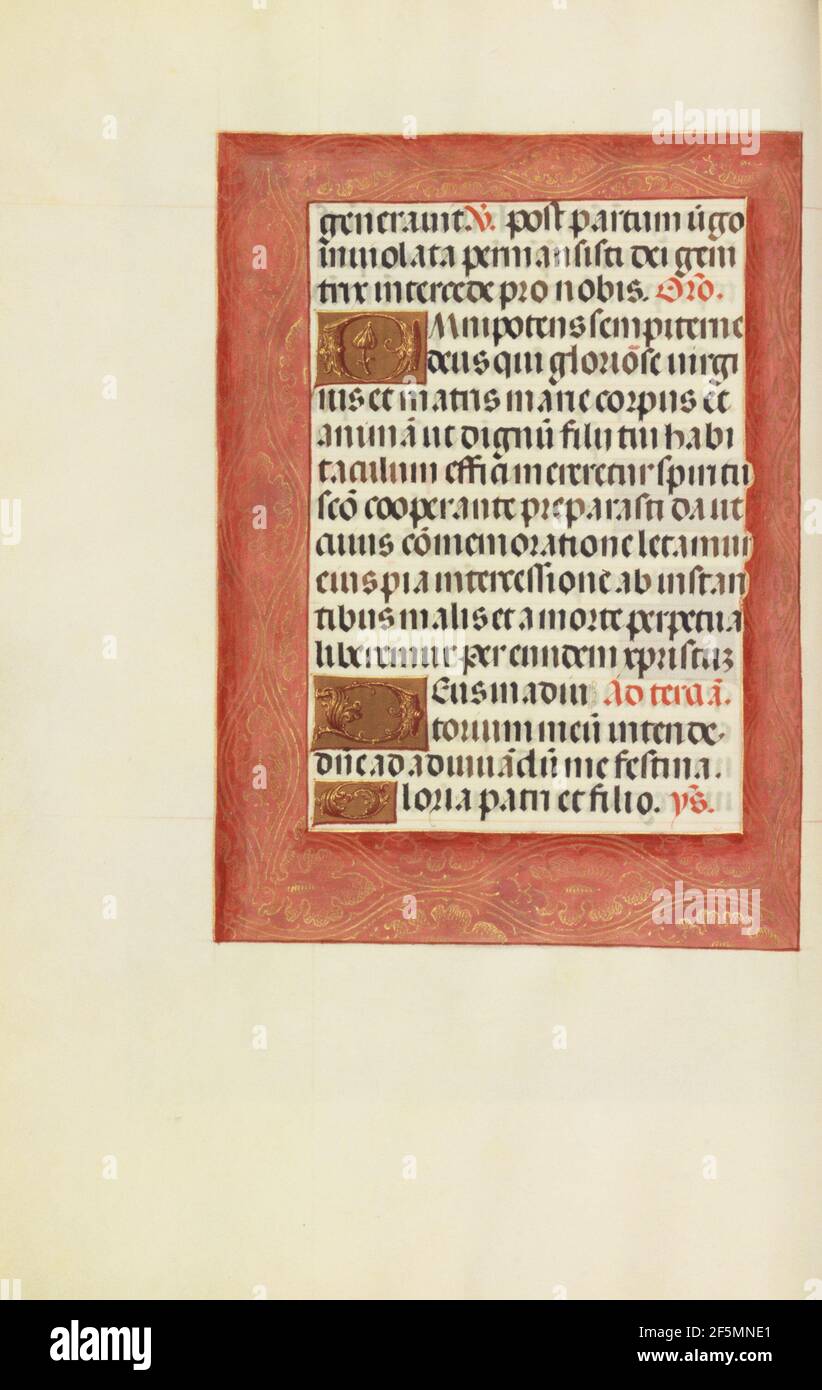 generavit. V̄. post partum v̄go
inviolata permansisti dei geni
trix intercede pro nobis. Or̄o.
OMnipotens sempiterne
deus qui gloriōse virgi
nis et matris marie corpus et
animā ut dignū filii tui habi
taculum effici mereretur spiritu
sc̄o cooperante preparasti da ut
cuius cōmemoratione letamur
eius pia intercessione ab instan
tibus malis et a morte perpetua
liberemur per eundem xpristuꝫ
DEus in adiu Ad terciā.
torium meū intende.
dn̄e ad adiuuādū me festina.
Gloria patri et filio. ys̄.
alamy
alamy
Image ID: 2F5MNE1
www.alamy.com